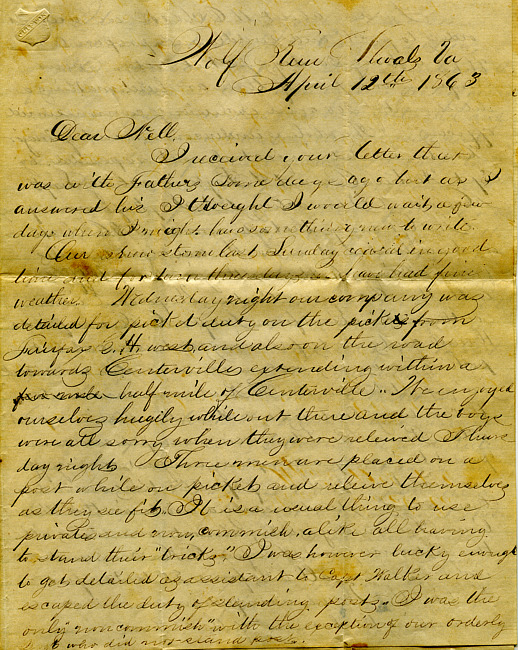 Wolf Run Shoals Va
April 12th 1863
Dear Nell.
I received your letter that
was with Fathers some days ago but as I
answered his I thought I would wait a few
days when I might have something new to write.
Our snow storm last Sunday ceased in good
time and for two or three days we have had fine
weather. Wednesday night our company was
detailed for picket duty on the picket from
Fairfax C.H. west, and also on the road
towards Centerville extending within a
half mile of Centerville. We enjoyed
ourselves hugily while out there and the boys
were all sorry when they were releived Thurs
day night. Three men are placed on a
post while on picket and releive themselves
as they see fit. It is a usual thing to use
privates and non, commish, alike all having
to stand their "tricks". I was however lucky enough
to get detailed as assistant to Capt Walker and
escaped the duty of standing post. I was the
only "non commish" with the exception of our orderly
who did not stand post.